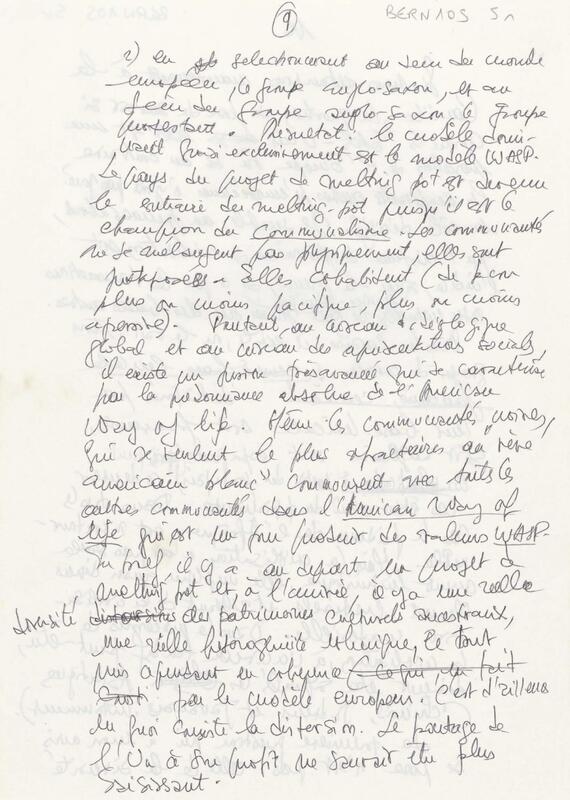 9
BERNOS 5
2) en sélectionnant au sein du monde
européen, le groupe anglo-saxon, et au
sein du groupe anglo-saxon le groupe
protestant. Résultat : le modèle domi-
nant quasi exclusivement est le modèle WASP.
Le pays du projet de melting pot est devenu
le contraire du melting-pot puisqu'il est le
champion du Communalisme. Les communautés
ne se mélangent pas physiquement, elles sont
juxtaposées. Elles cohabitent (de façon
plus ou moins pacifique, plus ou moins
agressive). Pourtant, au niveau idéologique
global et au niveau des représentations sociales,
il existe une fusion très avancée qui se caractérise
par la prédominance absolue de l'American
Way of life. Même les communautés noires,
qui se veulent le plus réfractaires au "rêve
américain blanc" communient avec toutes les
autres communautés dans l'American Way of
life qui est un pur produit des valeurs WASP.
En bref il y a au départ un projet de
melting pot et, à l'arrivée, il y a une réelle
diversité des patrimoines culturels ancestraux,
une réelle hétérogénéité ethnique, le tout
pris cependant en (ce qui, du fait
par le modèle européen. C'est d'ailleurs
en quoi consiste la distorsion. Le
l'Un à son profit ne saurait être plus
saisissant.